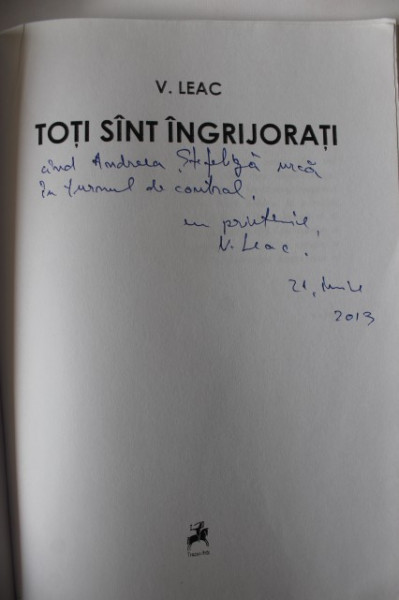 V. LEAC
TOȚI SÎNT ÎNGRIJORAȚI
când Andreea urcă
în turnul de control.
cu prietenie,
V. Leac.
21, iunie
2013